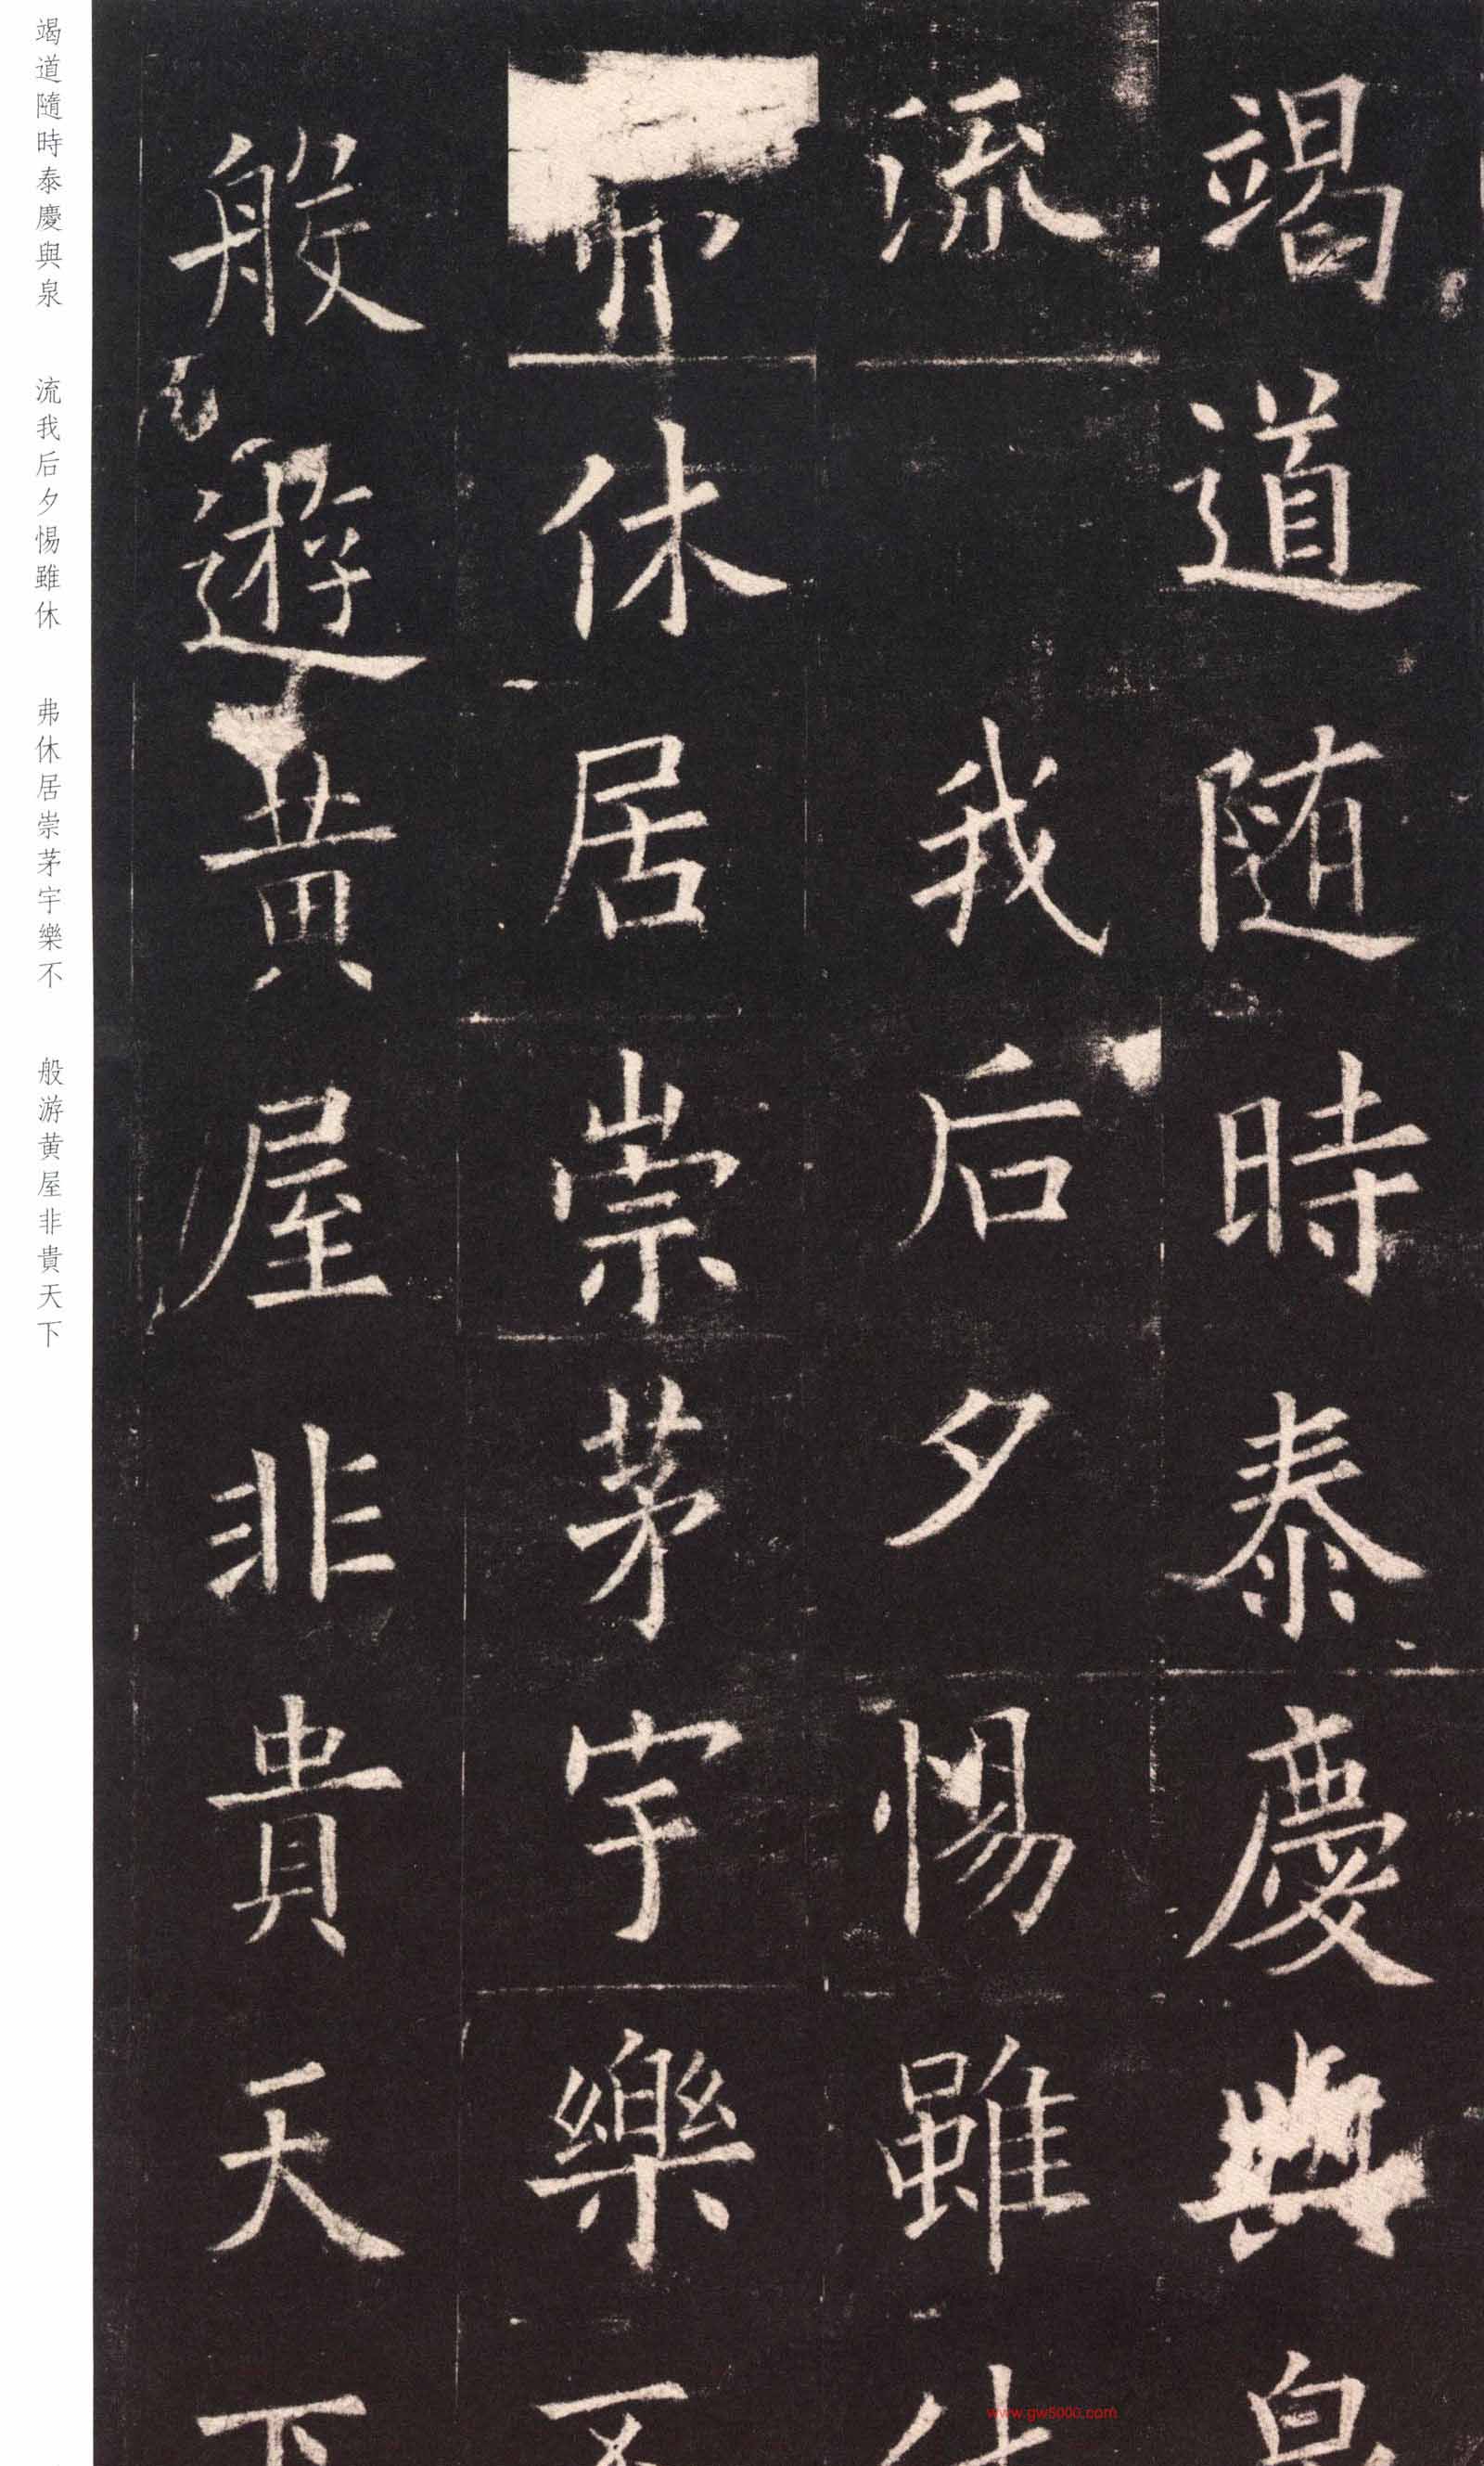 竭道随時泰慶與泉
流我后夕惕雖休
弗休居崇茅宇樂不
般遊黄屋非貴天下
竭道隨時泰慶與泉
流我后夕惕雖休
弗休居崇茅宇樂不
般游黄屋非貴天下
www.gw5000.com